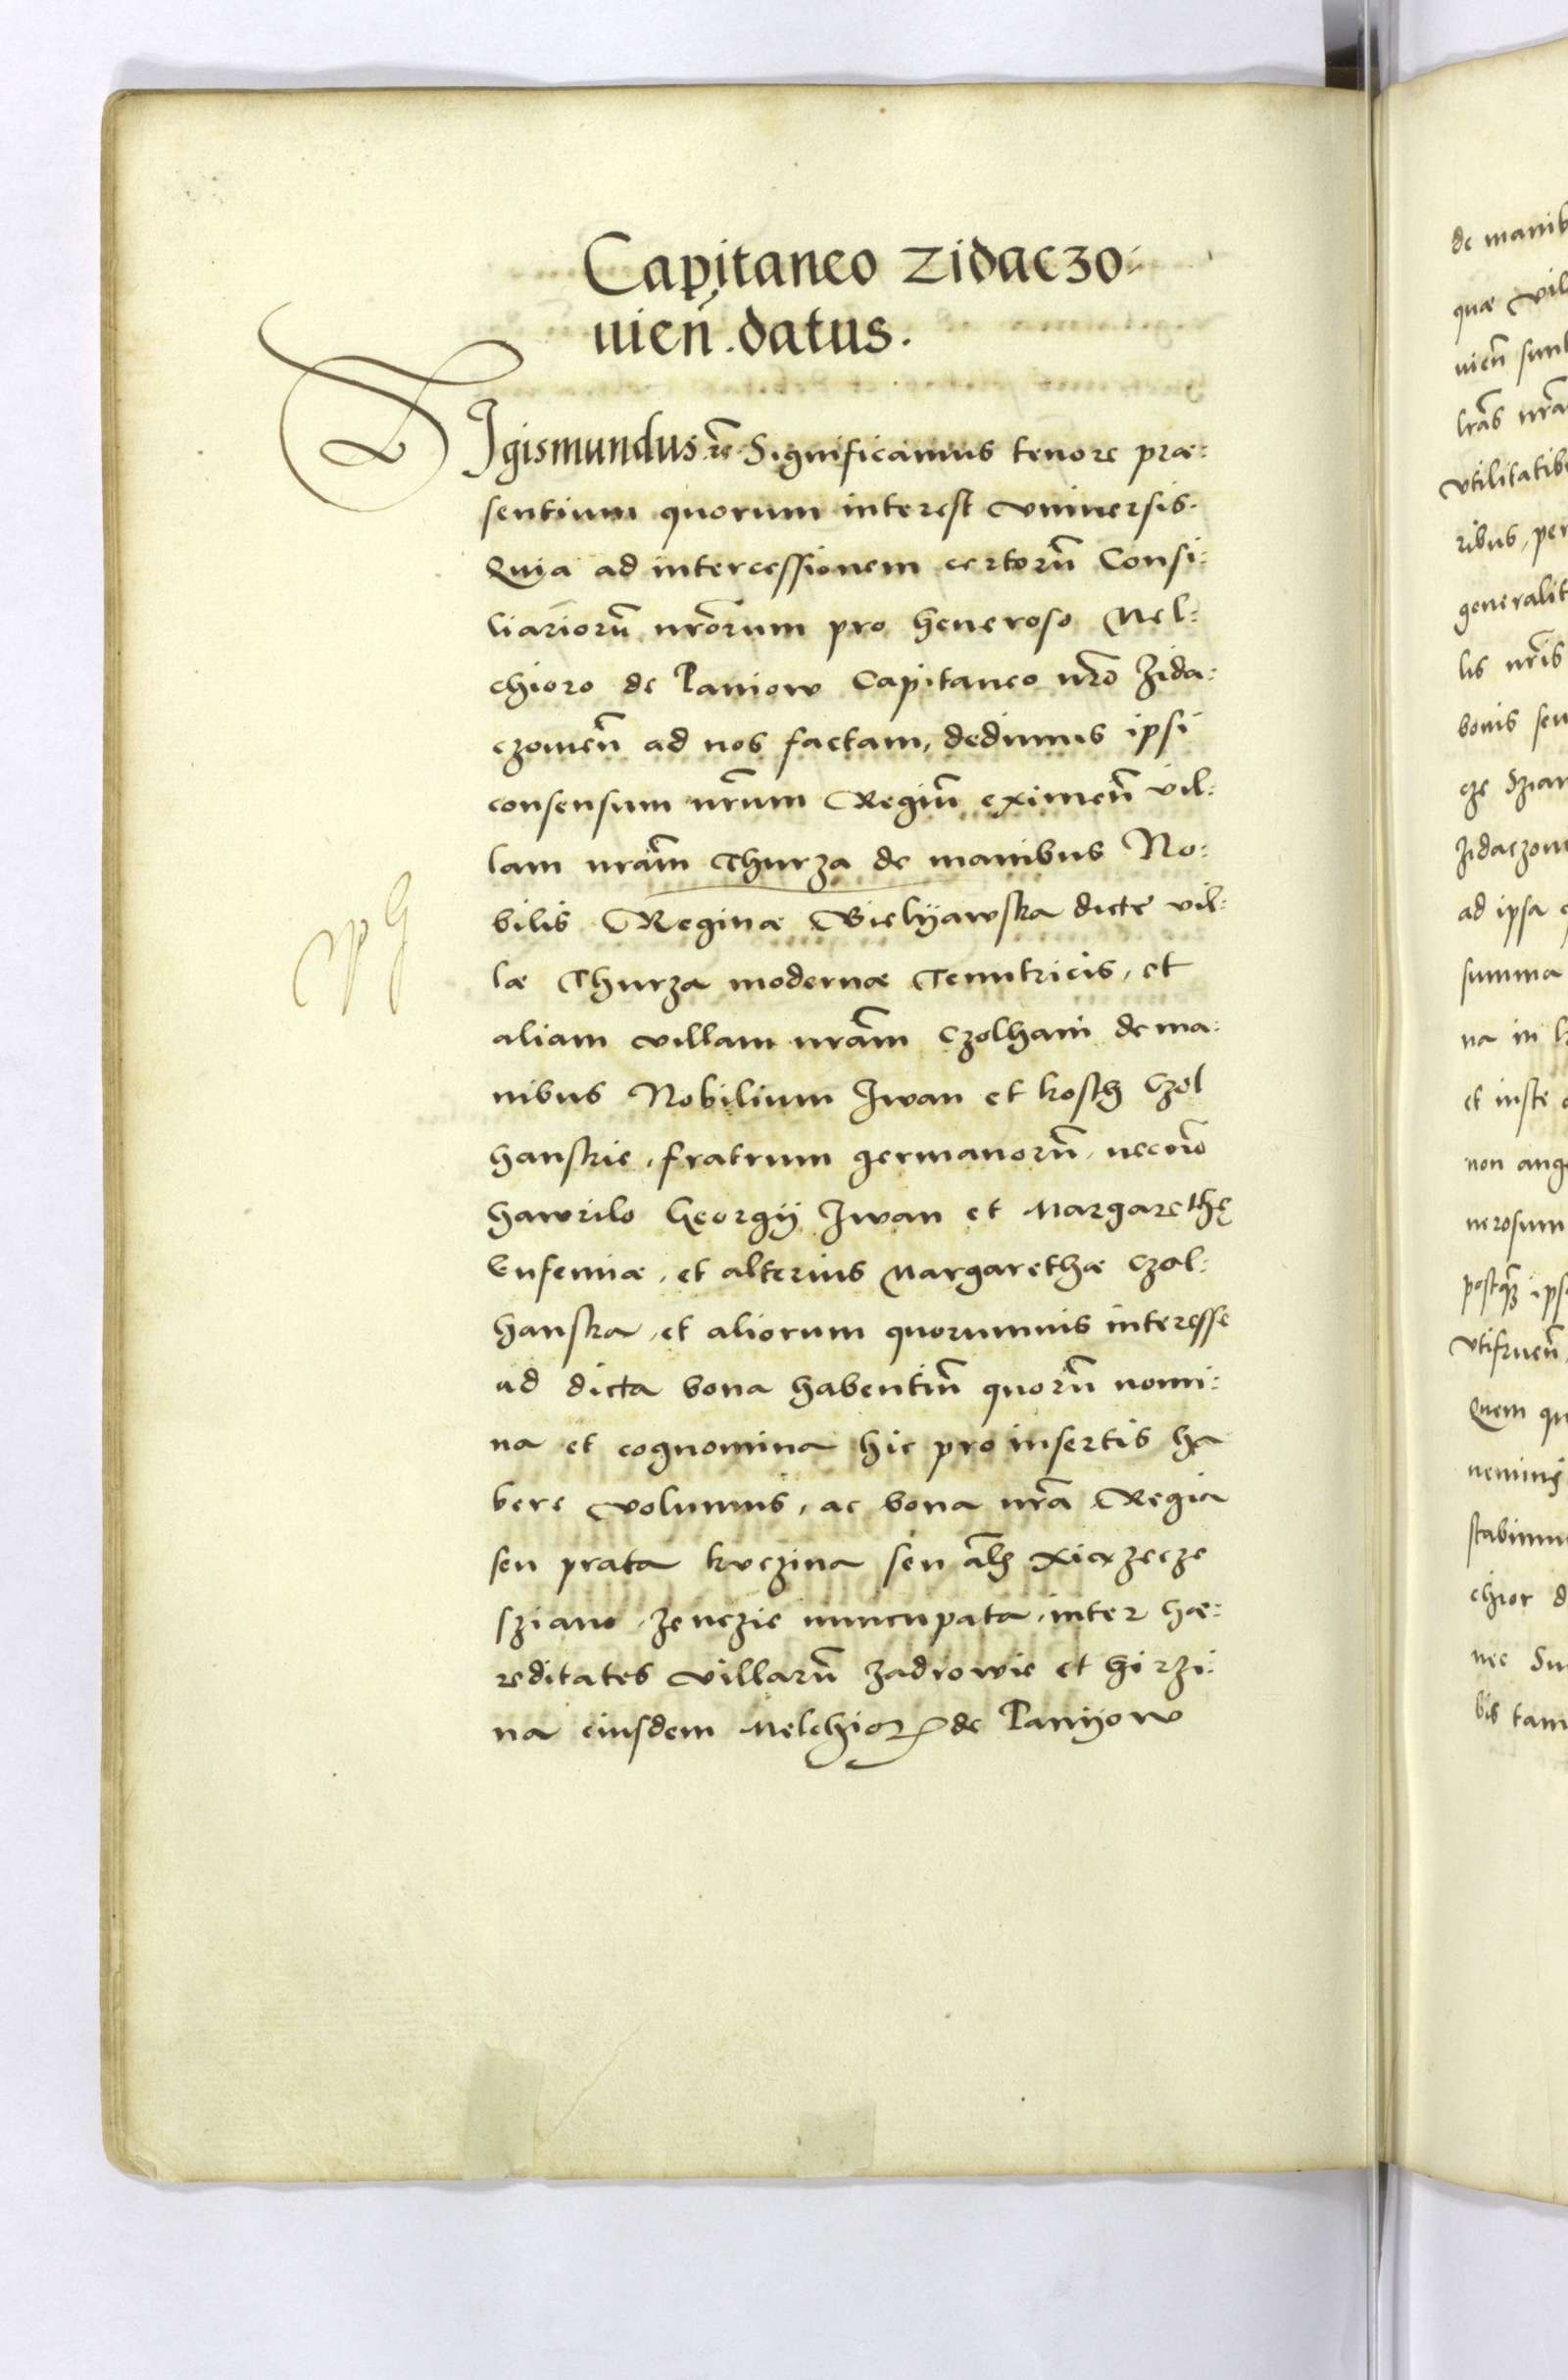 Capitaneo Zidaczo:
uien̄. datus.
SIgismundus rē Significamus tenore præ:
sentium quorum interest vniuersis.
Quia ad intercessionem certorū Consi:
liariorū nrōrum pro Generoso Mel:
chioro de Paniow Capitaneo nrō Zida:
czouien̄ ad nos factam, dedimus ipsi
consensum nrūm Regiū eximen̄ vil:
lam nrām Thurza de manibus No:
bilis Reginæ Bielyawska dicte vil:
læ Thurza modernæ Tenutricis, et
aliam villam nrām Czolhani de ma:
nibus Nobilium Iwan et Kosth Czol
hanskie, fratrum germanorū, necnō
Hawrilo Georgij Iwan et Margarethę
Eufemiæ, et alterius Margarethæ Czol:
hanska, et aliorum quorumuis interesse
ad dicta bona habentiū quorū nomi:
na et cognomina hic pro insertis ha
bere volumus, ac bona nrā Regia
seu prata Kuczina seu
sziano zenczie nuncupata, inter hæ:
reditates villarū Zadrowie et Hirzi:
na eiusdem Melchior de Paniyow
de manib
quæ vil
uien̄ sunt
lrās nrā
vtilitatib
ribus, per
generalit
lis nrīs
bonis seu
cze Szian
Zidaczou
ad ipsa
summa
na in
et iuste
non ang
nerosum
postqȝ ips
vtifruen̄
Quem qu
nemini
stabimu
chior d
nec Su
bis tam